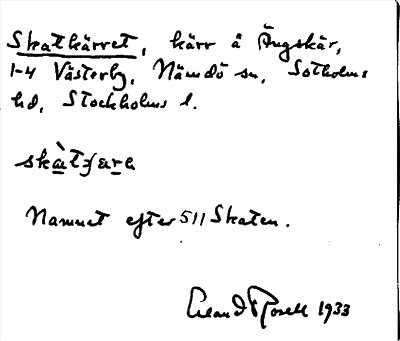 Skatkärret, kärr å Ängskär,
1-4 Västerby, Nämdö sn, Sotholms
hd, Stockholms l.
skàtɟärə
Namnet efter 511 Skaten.
Erland Rosell 1933